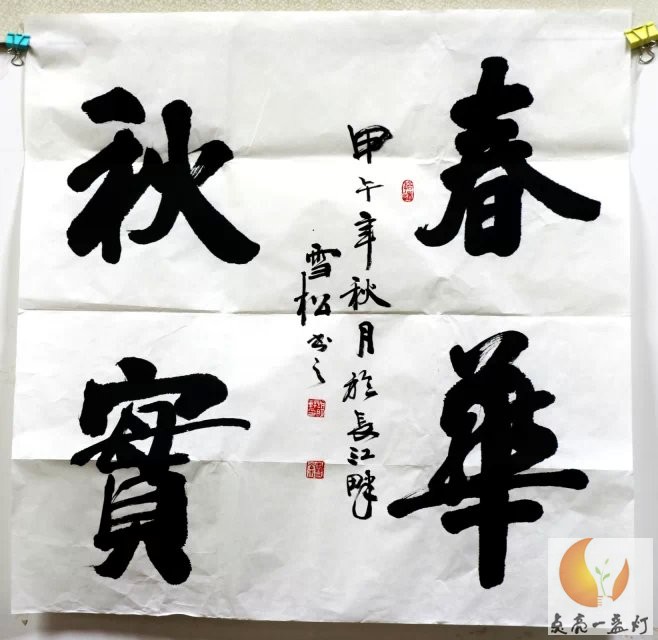 春華
秋實
甲午年秋月於長江畔
雪松书之
点亮一盏灯